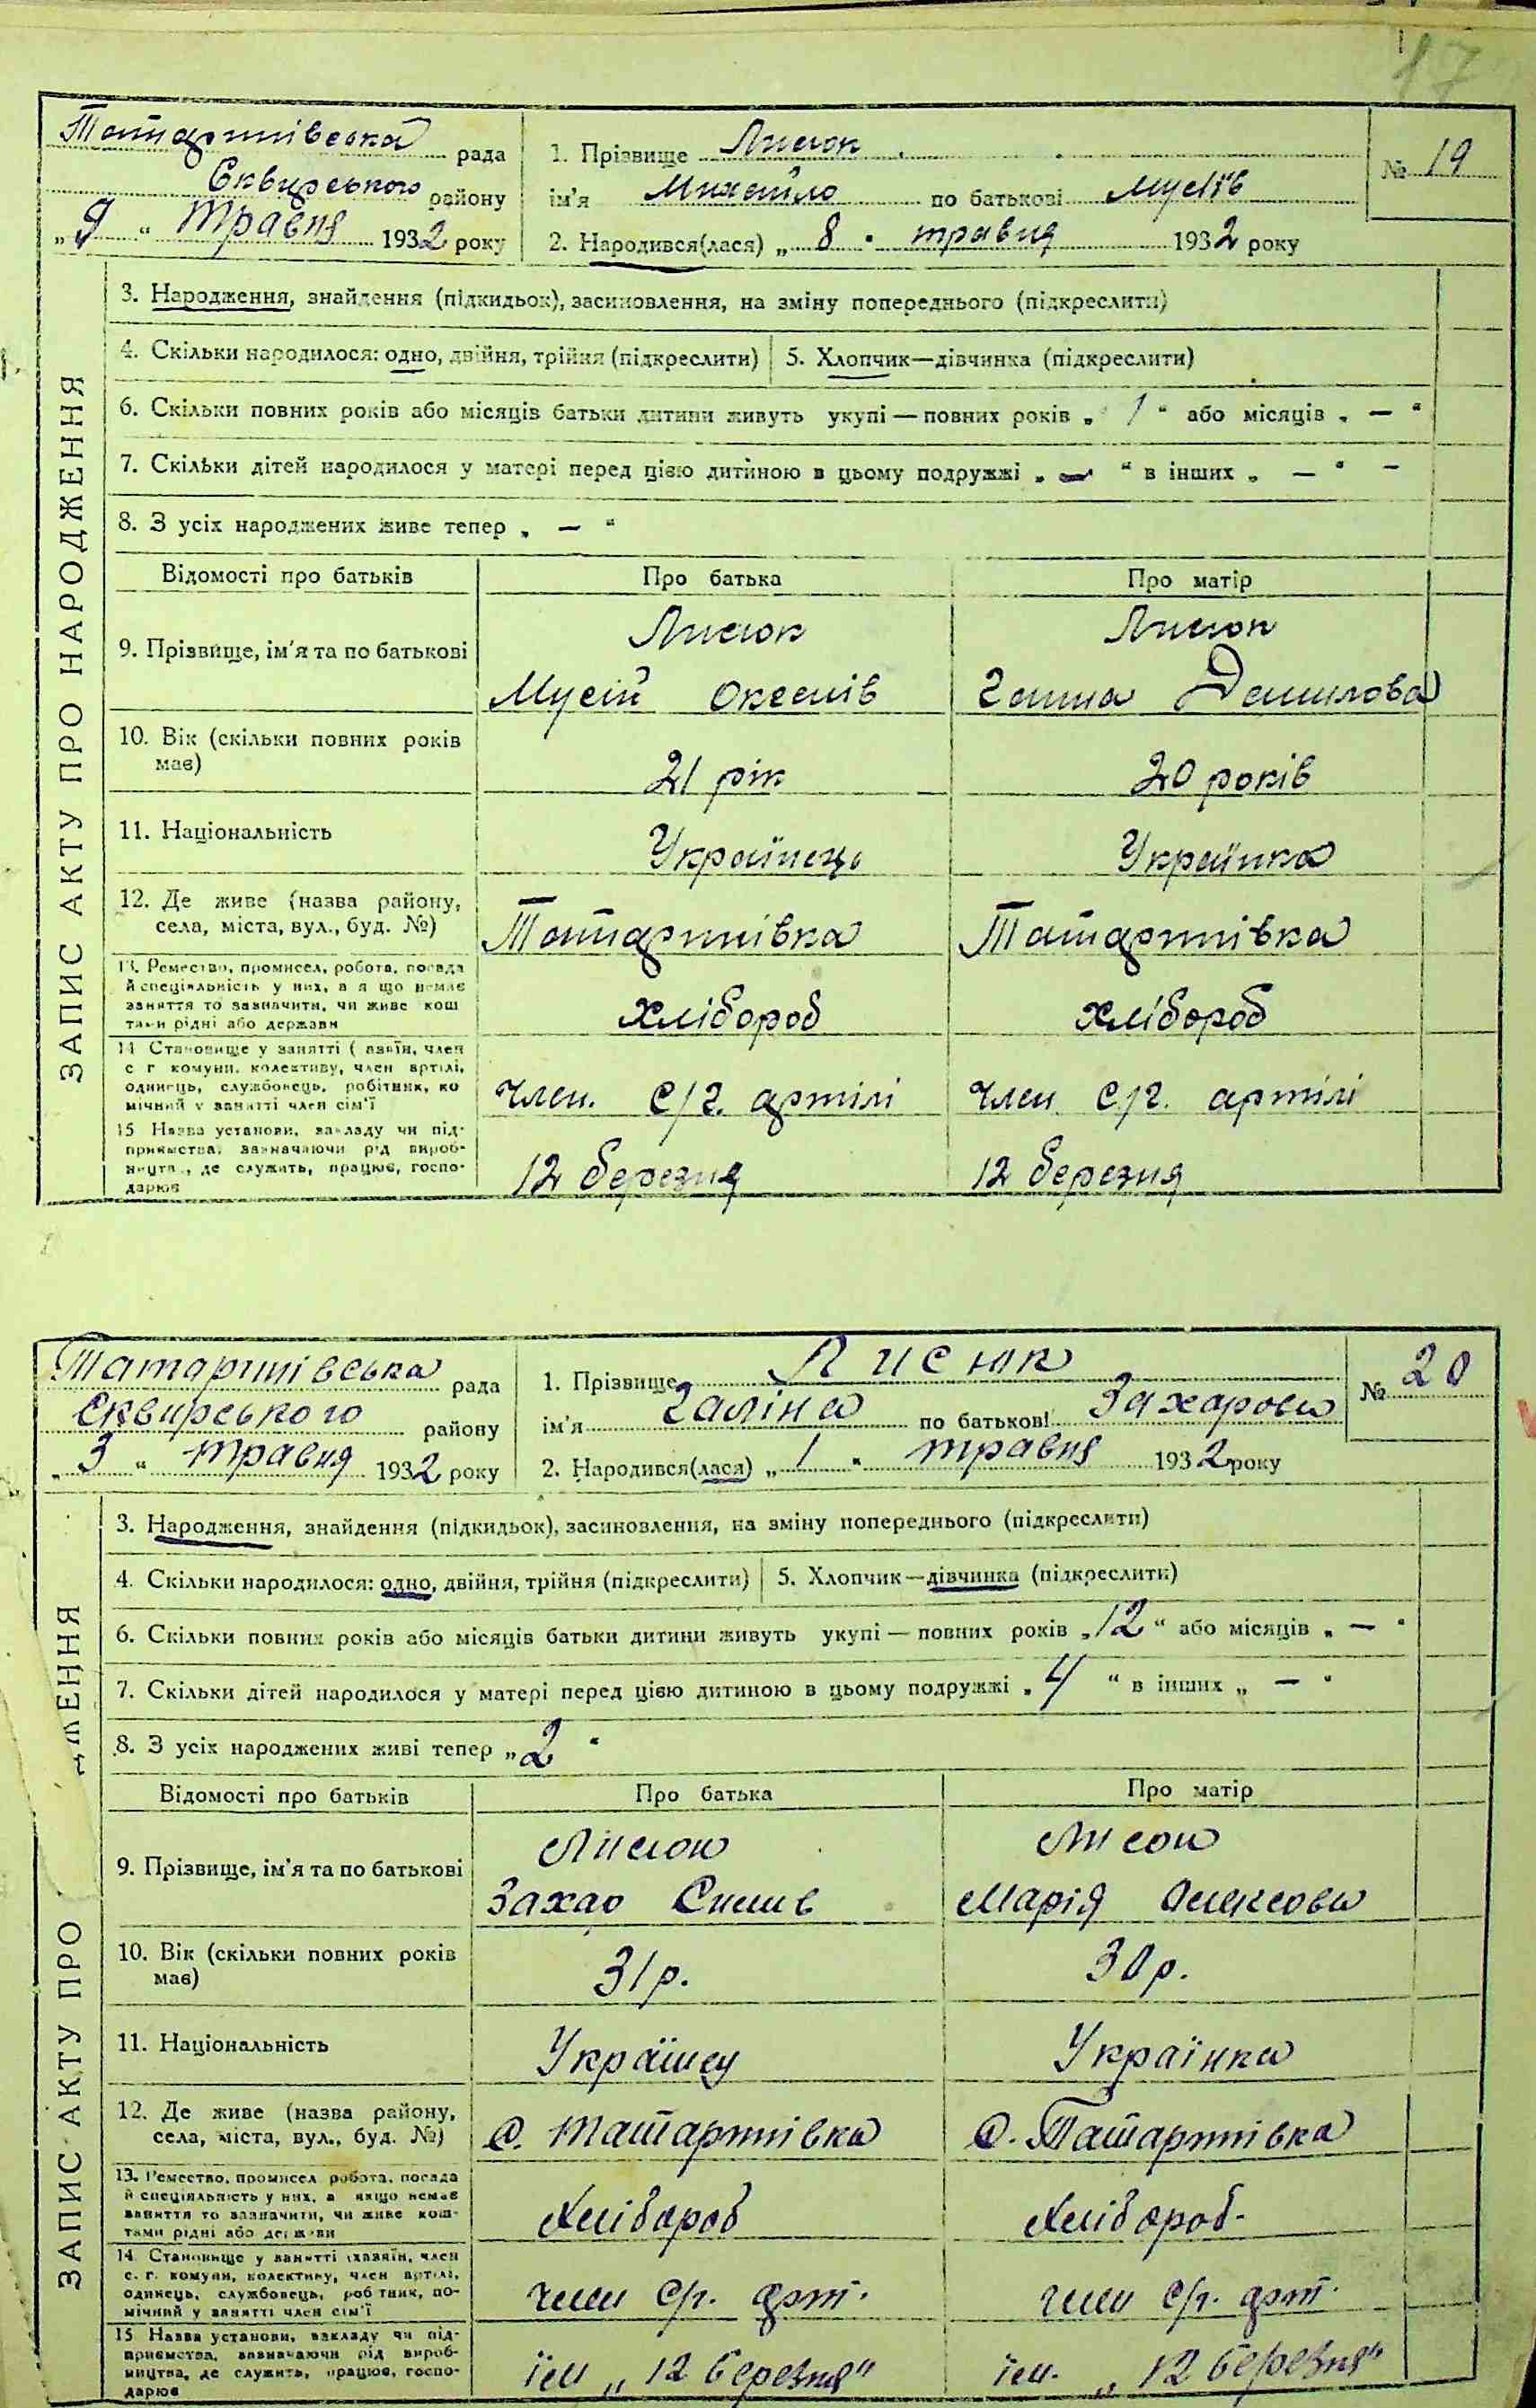 17
Татарппівська рада
Сквирського району
„9“ Травня 1932 року
1. Прізвище Лисюк
ім'я Михайло по батькові Мусіїв
2. Народився(лася) „8“ травня 1932 року
№ 19
ЗАПИС АКТУ ПРО НАРОДЖЕННЯ
3. Народження, знайдення (підкидьок), засиновлення, на зміну попереднього (підкреслити)
4. Скільки народилося: одно, двійня, трійня (підкреслити) 5. Хлопчик—дівчинка (підкреслити)
6. Скільки повних років або місяців батьки дитини живуть укупі — повних років „1“ або місяців „—“
7. Скільки дітей народилося у матері перед цією дитиною в цьому подружжі „—“ в інших „—“ —
8. З усіх народжених живе тепер „—“
Відомості про батьків Про батька Про матір
9. Прізвище, ім'я та по батькові
Лисюк Лисюк
Мусій Ганна Данилова
10. Вік (скільки повних років має)
21 рік 20 років
11. Національність
Українець Українка
12. Де живе (назва району,
села, міста, вул., буд. №)
Татарппівка Татарппівка
13. Ремество, промисел, робота, посада
й спеціяльність у них, а якщо немає
заняття то зазначити, чи живе кош
тами рідні або держави
хлібороб хлібороб
14 Становище у занятті (хазяїн, член
с г комуни, колективу, член артілі,
одинець, службовець, робітник, по
мічний у занятті член сім'ї
член. с/г. артілі член с/г. артілі
15 Назва установи, закладу чи під-
приємства, зазначаючи рід вироб-
ництва, де служить, працює, госпо-
дарює
12 березня 12 березня
Татарппівська рада
Сквирського району
„3“ травня 1932 року
1. Прізвище Лисюк
ім'я Галіна по батькові Захарова
2. Народився(лася) „1“ травня 1932 року
№ 20
ЗАПИС АКТУ ПРО ДЖЕННЯ
3. Народження, знайдення (підкидьок), засиновлення, на зміну попереднього (підкреслити)
4. Скільки народилося: одно, двійня, трійня (підкреслити) 5. Хлопчик—дівчинка (підкреслити)
6. Скільки повних років або місяців батьки дитини живуть укупі — повних років „12“ або місяців „—“
7. Скільки дітей народилося у матері перед цією дитиною в цьому подружжі „4“ в інших „—“
8. З усіх народжених живі тепер „2“
Відомості про батьків Про батька Про матір
9. Прізвище, ім'я та по батькові
Лисюк Лисюк
Захар Марія Олексова
10. Вік (скільки повних років
має)
31р. 30р.
11. Національність
Українец Українка
12. Де живе (назва району,
села, міста, вул., буд. №)
С. Татарппівка С. Татарппівка
13. Ремество, промисел робота, посада
й спеціяльність у них, а якщо немає
заняття то зазначити, чи живе кош-
тами рідні або держави
Хлібороб Хлібороб-
14 Становище у занятті (хазяїн, член
с. г. комуни, колективу, член артілі,
одинець, службовець, робітник, по-
мічний у занятті член сім'ї
член с/г. арт. член с/г. арт.
15 Назва установи, закладу чи під-
приємства, зазначаючи рід вироб-
ництва, де служить, працює, госпо-
дарює
їм „12 березня“ їм. „12 березня“